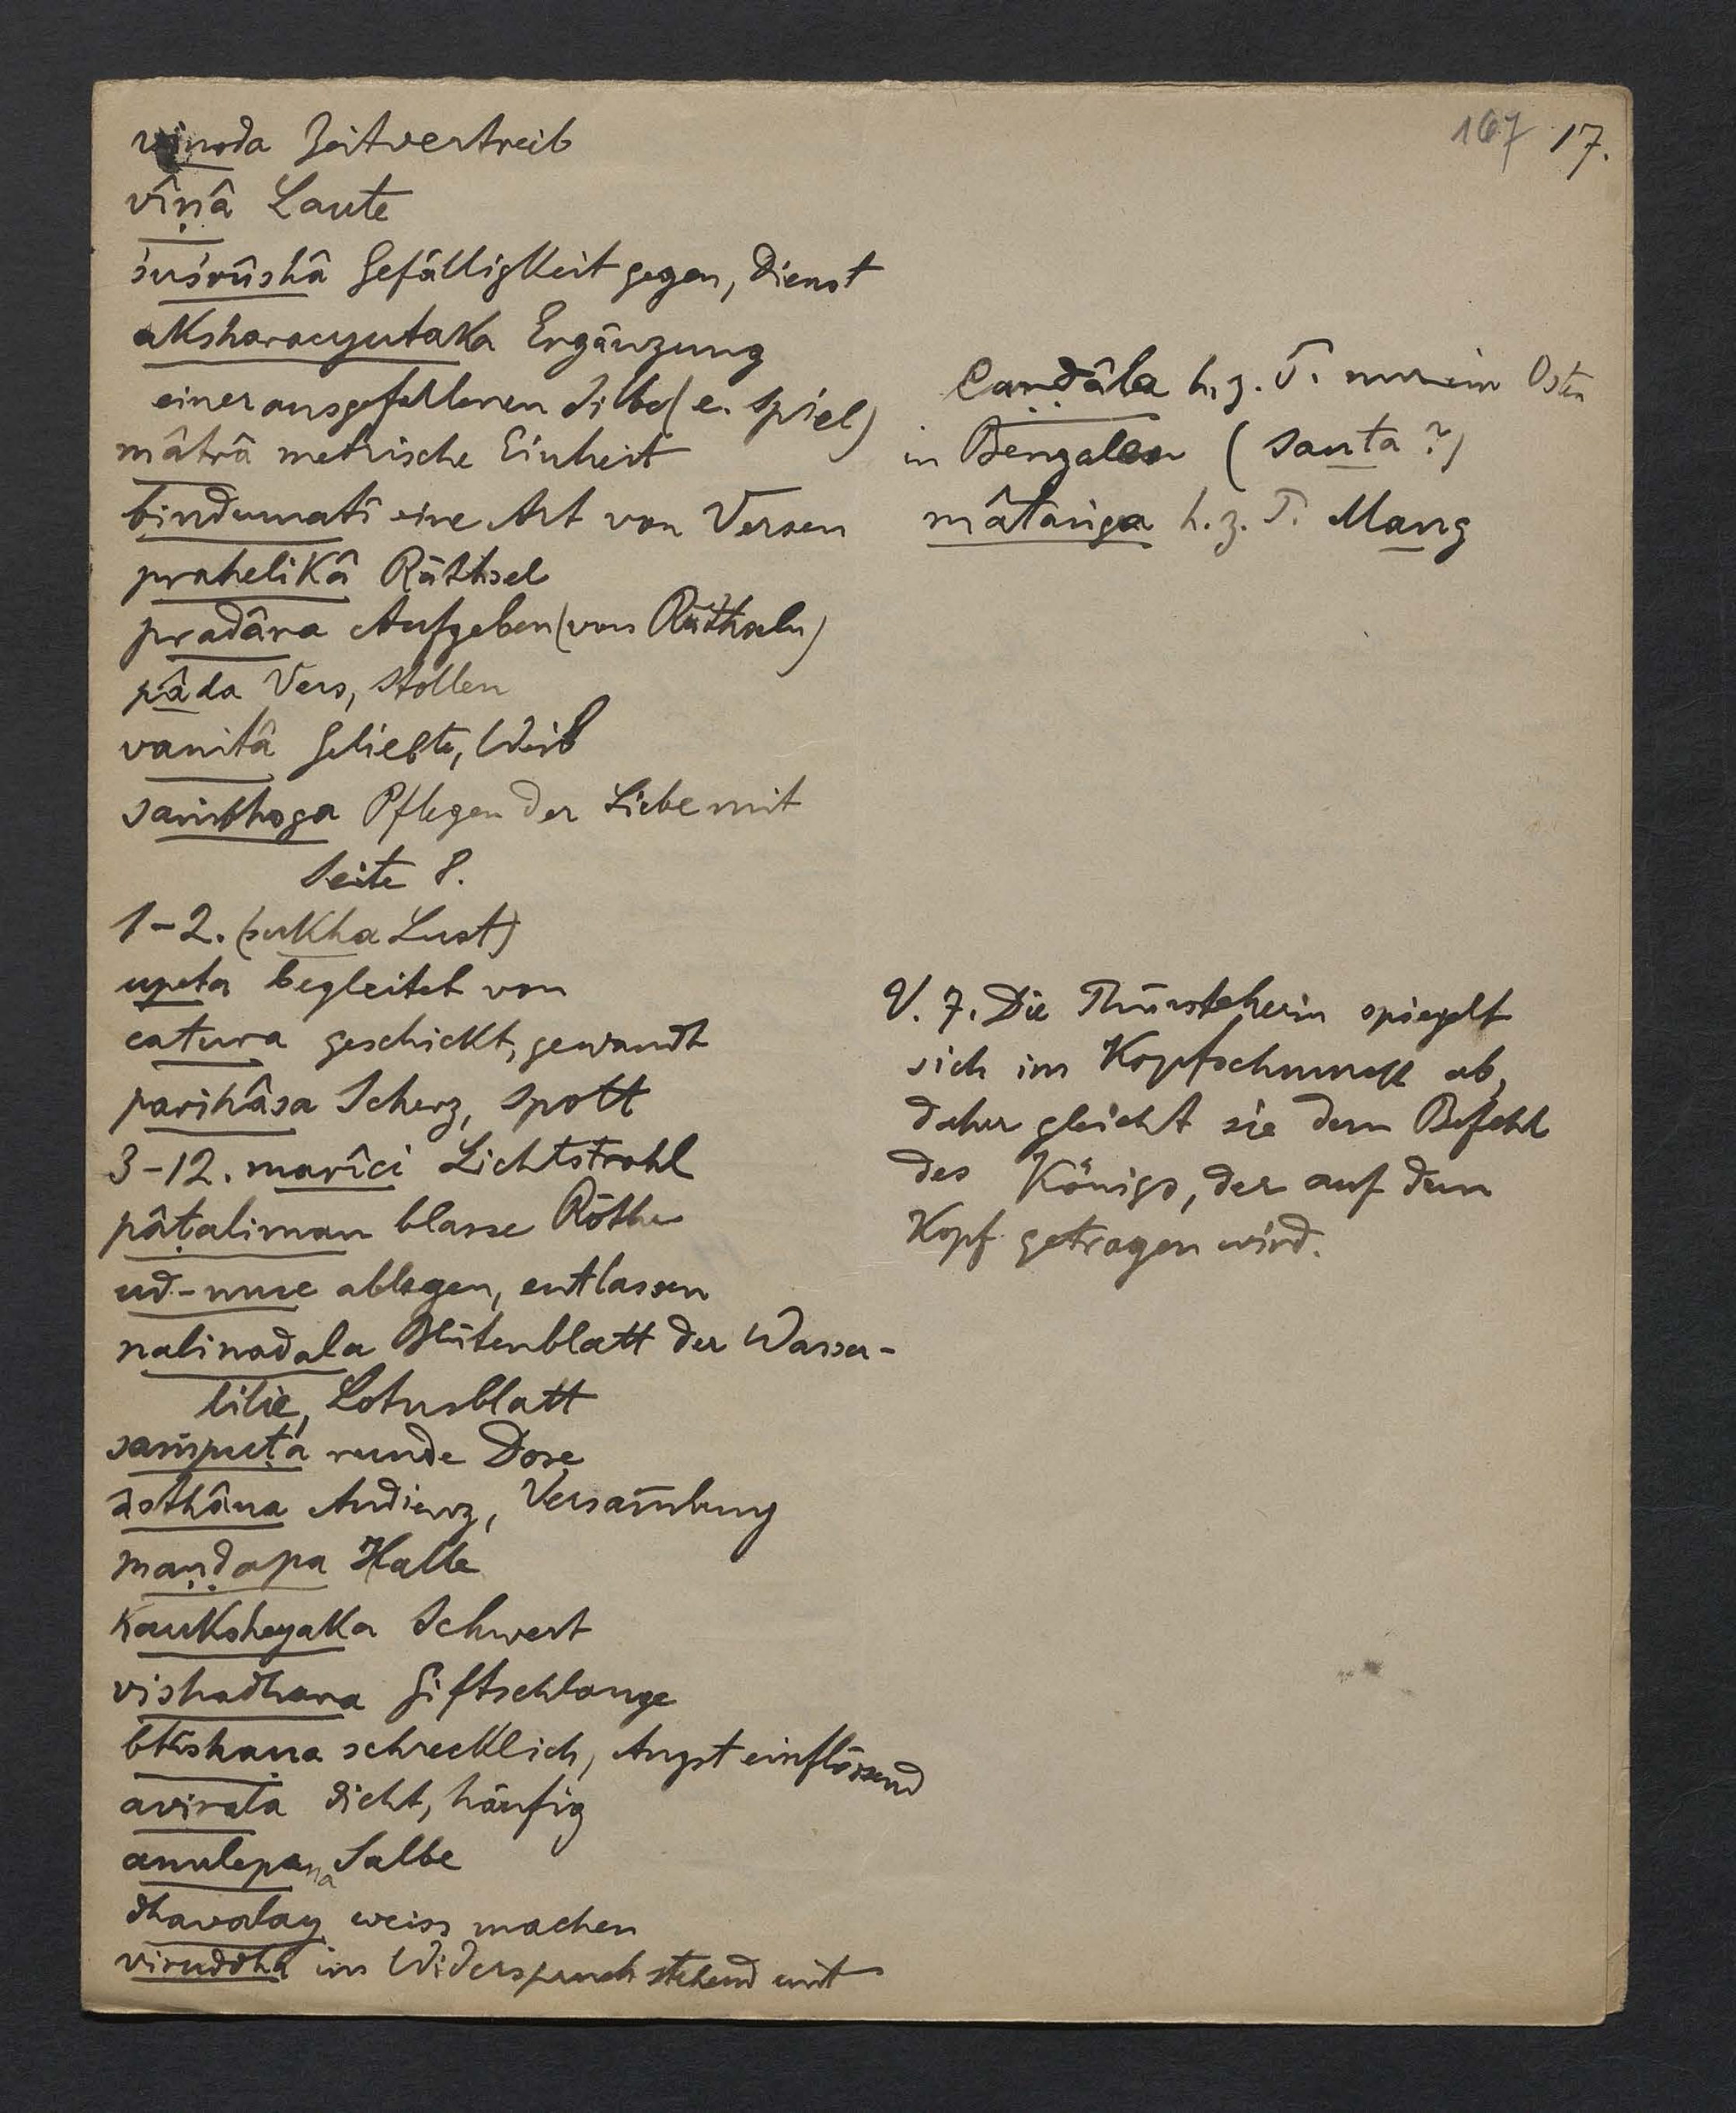 167 17.
vinoda Zeitvertreib
vîṇâ Laute
śuśrûshâ Gefälligkeit gegen, Dienst
aksharacyutaka Ergänzung
einer ausgefallenen Silbe (e. Spiel)
mâtrâ metrische Einheit
bindumatî eine Art von Versen
prahelikâ Räthsel
pradâna Aufgeben (von Räthseln)
pâda Vers, Stollen
vanitâ Geliebte, Weib
saṁbhoga Pflegen der Liebe mit
Seite 8.
1-2. (sukha Lust)
upeta begleitet von
catura geschickt, gewandt
parihâsa Scherz, Spott
3-12. marîci Lichtstrahl
pâṭaliman blasse Röthe
ud-muc ablegen, entlassen
nalinadala Blütenblatt der Wasser-
lilie, Lotusblatt
saṁpuṭa runde Dose
âsthâna Audienz, Versam̄lung
maṇḍapa Halle
kauksheyaka Schwert
vishadhara Giftschlange
bhîshaṇa schrecklich, Angst einflössend
avirala dicht, häufig
anulepana Salbe
dhavalay weiss machen
viruddha im Widerspruch stehend mit
Caṇḍâla h. z. T. nur im Osten
in Bengalen (Santa?)
mâtaṅga h. z. T. Mang
V. 7. Die Thürsteherin spiegelt
sich im Kopfschmuck ab,
daher gleicht sie dem Befehl
des Königs, der auf dem
Kopf getragen wird.